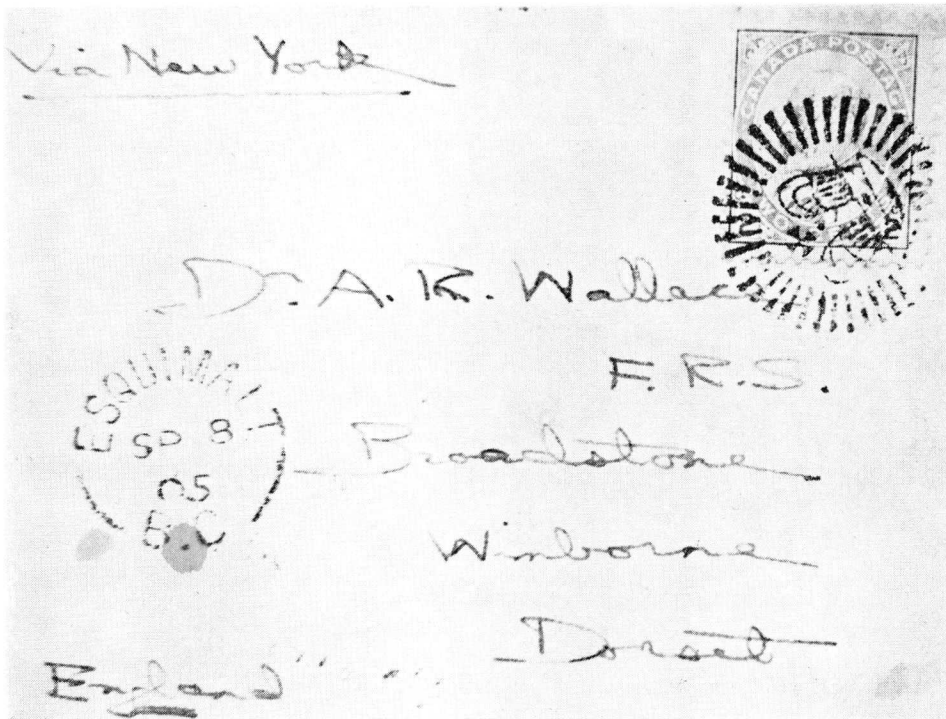 Via New York
CANADA POSTAGE
Dr. A. R. Wallace
F. R. S.
ESQUIMALT
SP 8
05
B.C
Broadstone
Wimborne
Dorset
England